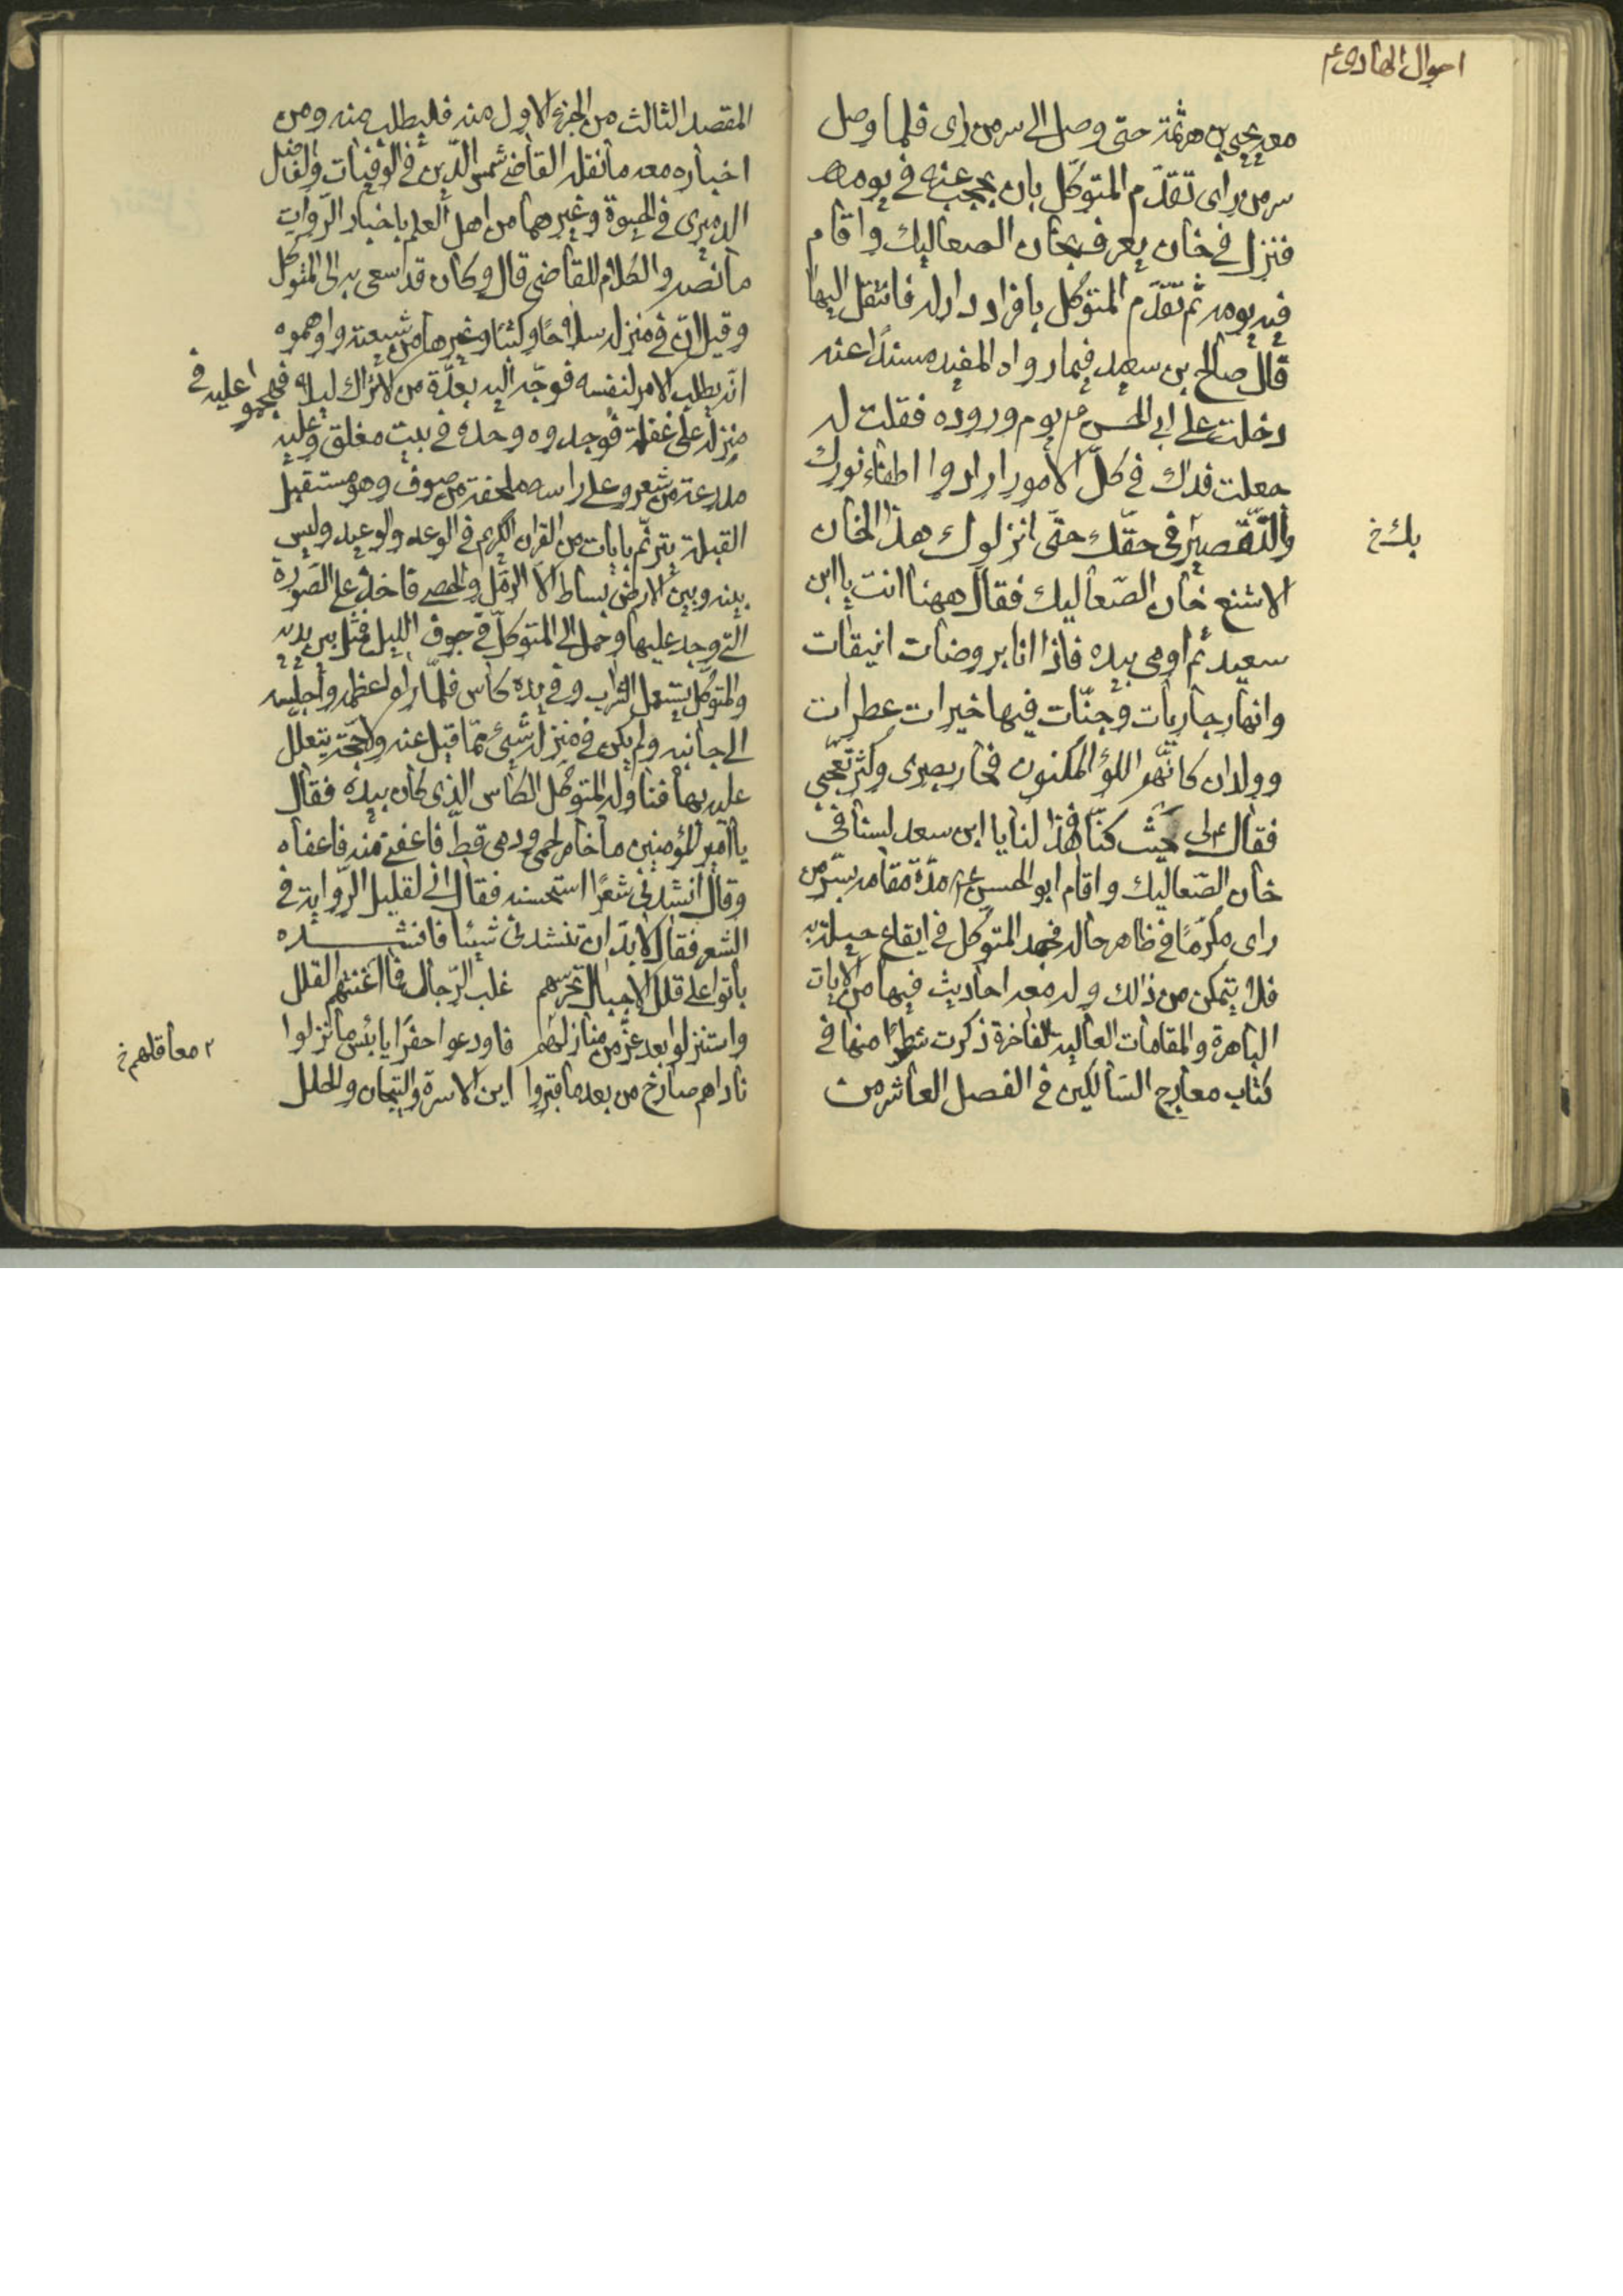 احوال الهادی ع
معه يحيى بن هرثمة حتى وصل الى سر من رای فلما وصل
سر من رای تقدّم المتوكّل بان يحجب عنه فی يومه
فنزل فی خان يعرف بخان الصعاليك واقام
فيه يومه ثم تقدّم المتوكل بافراد دار له فانتقل اليها
قال صالح بن سعيد فيما رواه المفيد مسنداً عنه
دخلت على ابی الحسن ع يوم وروده فقلت له
جعلت فداك فی كلّ الامور ارادوا اطفاء نورك
والتّقصير فی حقّك حتّى انزلوك هذا الخان
بك خ
الاشنع خان الصّعاليك فقال ههنا انت يا ابن
سعيد ثم اومی بيده فاذا انا بروضات انيقات
وانهار جاريات وجنّات فيها خيرات عطرات
وولدان كانّهم اللؤلؤ المكنون فحار بصری وكثر تعجّبی
فقال لی حيث كنّا فهذا لنا يا ابن سعد لسنا فی
خان الصّعاليك واقام ابو الحسن ع مدّة مقامه بسّر من
رای مكرّمًا فی ظاهر حاله فجهد المتوكل فی ايقاع حيلة به
فلم يتمكن من ذلك وله معه احاديث فيها من الايات
الباهرة والمقامات العاليه الفاخرة ذكرت شطرًا منها فی
كتاب معارج السّالكين فی الفصل العاشر من
المقصد الثالث من الجزء الاول منه فليطلب منه ومن
اخباره معه ما نقله القاضی شمس الدّين فی الوفيات والفاضل
الدميری فی الحيوة وغيرهما من اهل العلم باخبار الرّوات
ما نصه والكلام للقاضی قال وكان قد سعی به الى المتوكل
وقيل انّ فی منزله سلاحًا وكتبًا وغيرها من شيعته واوهموه
انّه يطلب الامر لنفسه فوجّه اليه بعدّة من الاتراك ليلا فهجموا عليه فی
منزله على غفلة فوجدوه وحده فی بيت مغلق وعليه
مدرعة من شعر وعلى راسه ملحفة من صوف وهو مستقبل
القبلة يترنّم بايات من القران الكريم فی الوعد والوعيد وليس
بينه وبين الارض بساط الّا الرّمل والحصی فاخذ على الصّورة
التی وجد عليها وحمل الى المتوكّل فی جوف الليل فمثل بين يديه
والمتوكّل يستعمل الشراب وفی يده كاس فلمّا راه اعظمه واجلسه
الى جانبه ولم يكن فی منزله شیء ممّا قيل عنه ولا حجّة يتعلّل
عليه بها فناوله المتوكّل الكاس الذی كان بيده فقال
يا امير المؤمنين ما خامر لحمی ودمی قطّ فاعفنی منه فاعفاه
وقال انشدنی شعرًا استحسنه فقال انی لقليل الرّواية فی
الشعر فقال لا بدّ ان تنشدنی شيئا فانشده
باتوا على قلل الاجبال تحرسهم غلب الرّجال فما اغنتهم القلل
واستنزلوا بعد عزّ من منازلهم فاودعوا حفرًا يا بئس ما نزلوا
٢ معاقلهم خ
ناداهم صارخ من بعد ما قبروا اين الاسرة والتيجان والحلل